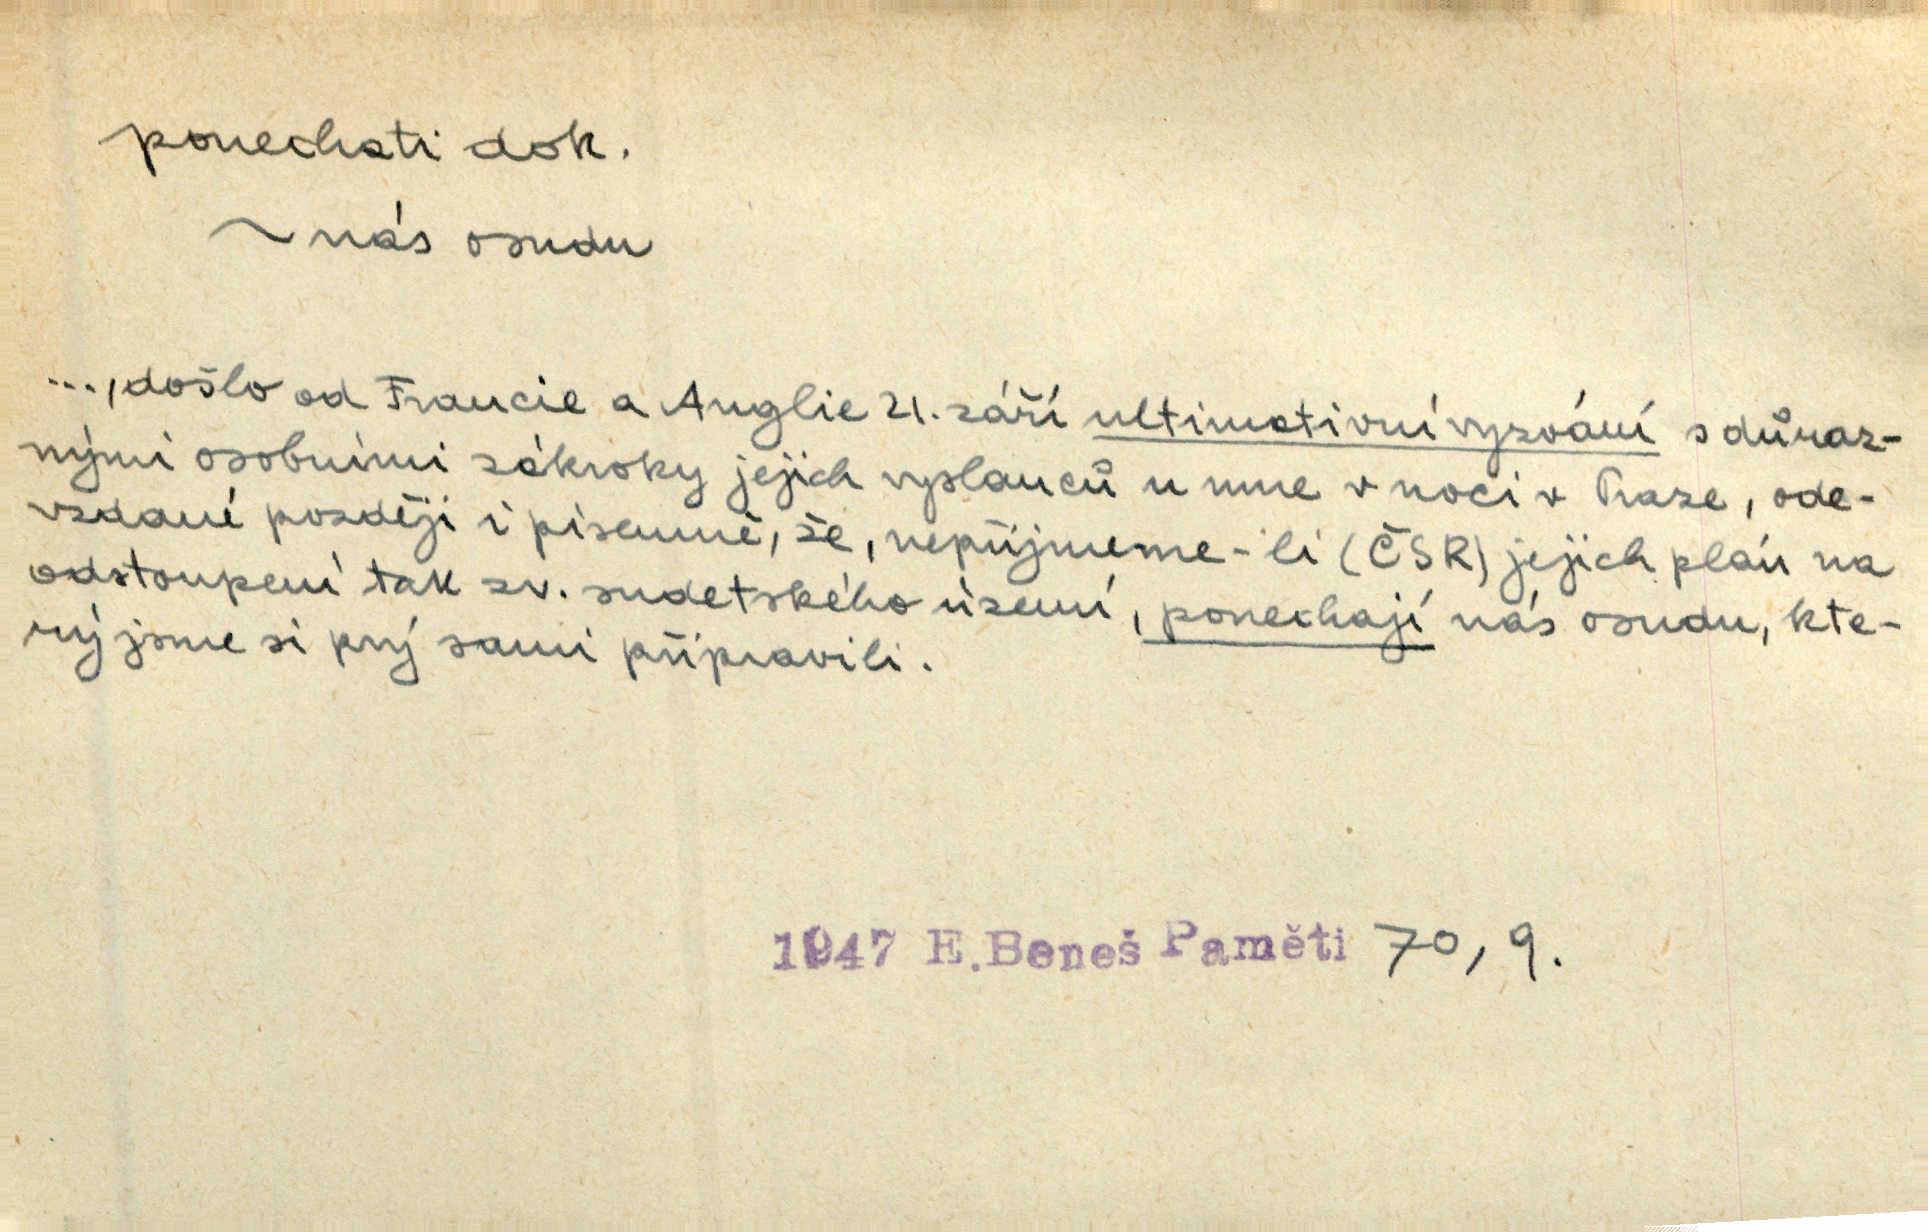 ponechati dok.
~ nás osudu
..., došlo od Francie a Anglie 21. září ultimativní vyzvání s důraz-
nými osobními zákroky jejich vyslanců u mne v noci v Praze, ode-
vzdané později i písemně, že, nepřijmeme-li (ČSR) jejich plán na
odstoupení tak zv. sudetského území, ponechají nás osudu, kte-
rý jsme si prý sami připravili.
1947 E. Beneš Paměti 70, 9.